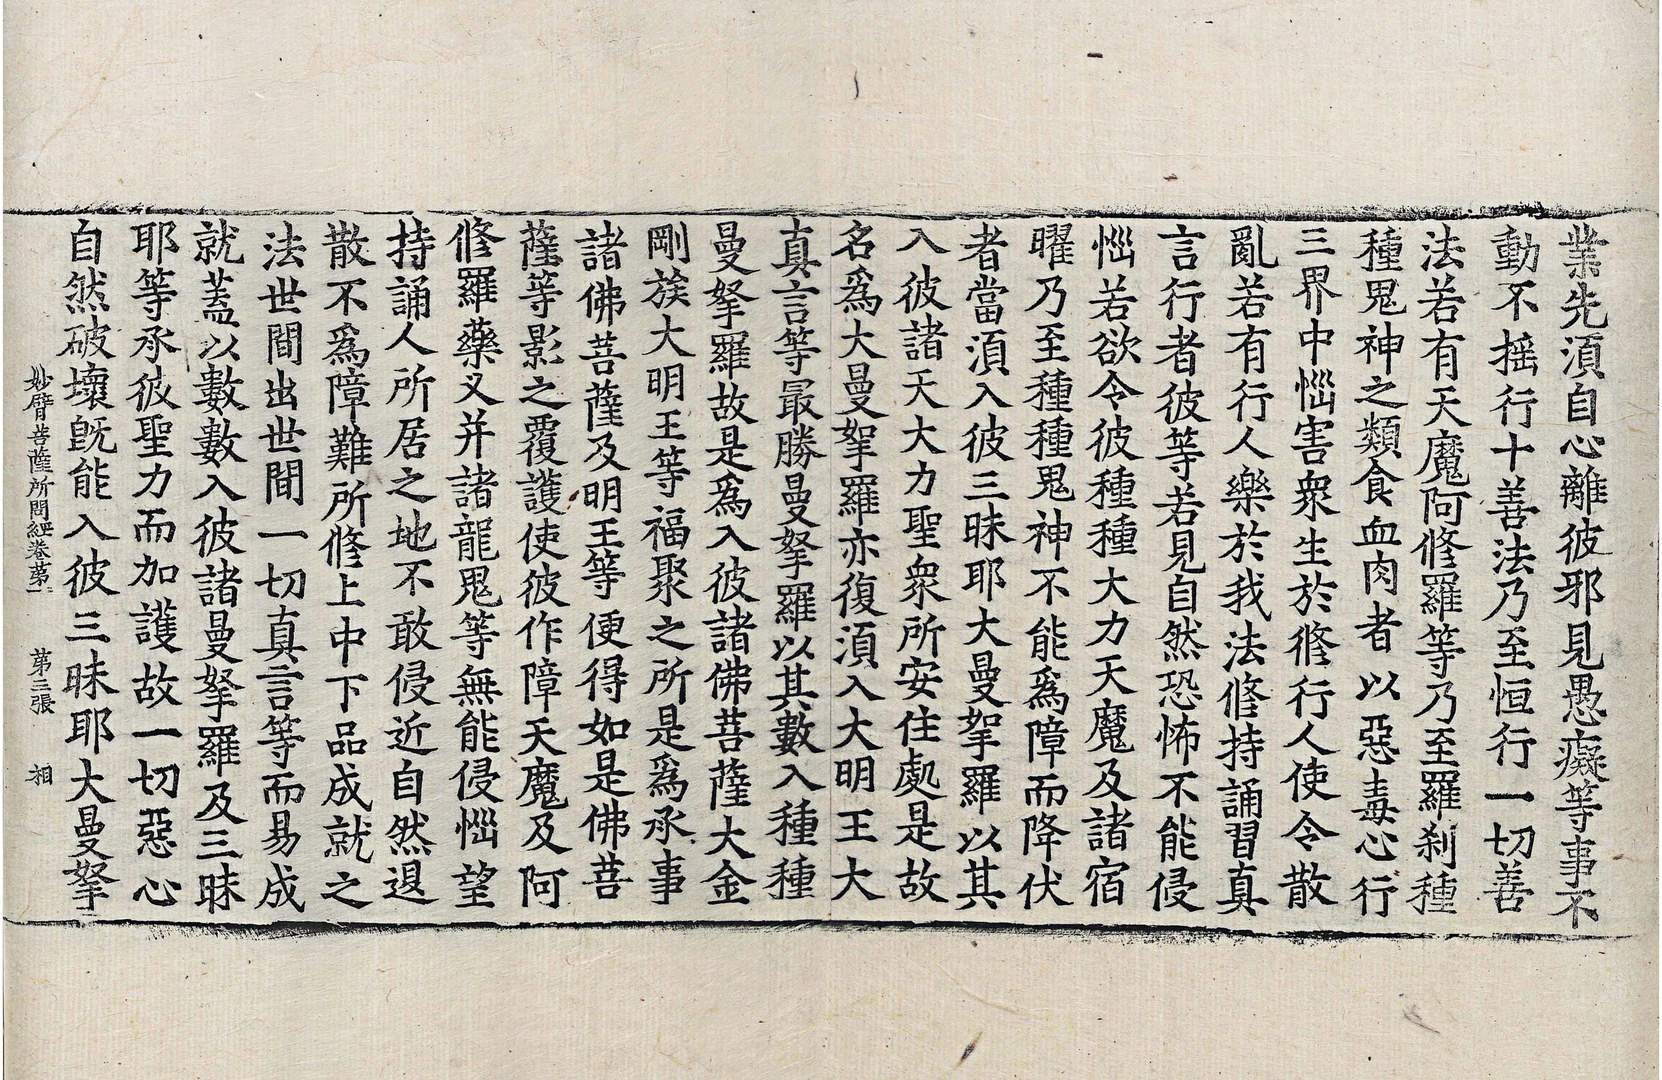 業先湏自心離彼邪見愚癡等事不
動不揺行十善法乃至恒行一切善
法若有天魔阿修羅等乃至羅刹種
種鬼神之類食血肉者以惡毒心行
三界中惱害衆生於修行人使令散
亂若有行人樂於我法修持誦習真
言行者彼等若見自然恐怖不能侵
惱若欲令彼種種大力天魔及諸宿
曜乃至種種鬼神不能爲障而降伏
者當湏入彼三昧耶大曼拏羅以其
入彼諸天大力聖衆所安住處是故
名爲大曼拏羅亦復湏入大明王大
真言等最勝曼拏羅以其數入種種
曼拏羅故是爲入彼諸佛菩薩大金
剛族大明王等福聚之所是爲承事
諸佛菩薩及明王等便得如是佛菩
薩等影之覆護使彼作障天魔及阿
修羅藥叉并諸龍鬼等無能侵惱望
持誦人所居之地不敢侵近自然退
散不爲障難所修上中下品成就之
法世間出世間一切真言等而易成
就蓋以數數入彼諸曼拏羅及三昧
耶等承彼聖力而加護故一切惡心
自然破壞旣能入彼三昧耶大曼拏
妙臂菩薩所問經卷第一 第三張 相